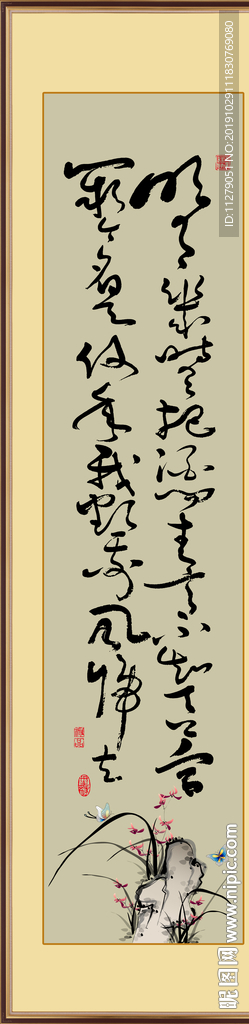 明月几时有把酒问青天不知天上宫
阙今夕是何年我欲乘风归去
ID:11279051 NO:20191029111830769080
昵图网 www.nipic.com